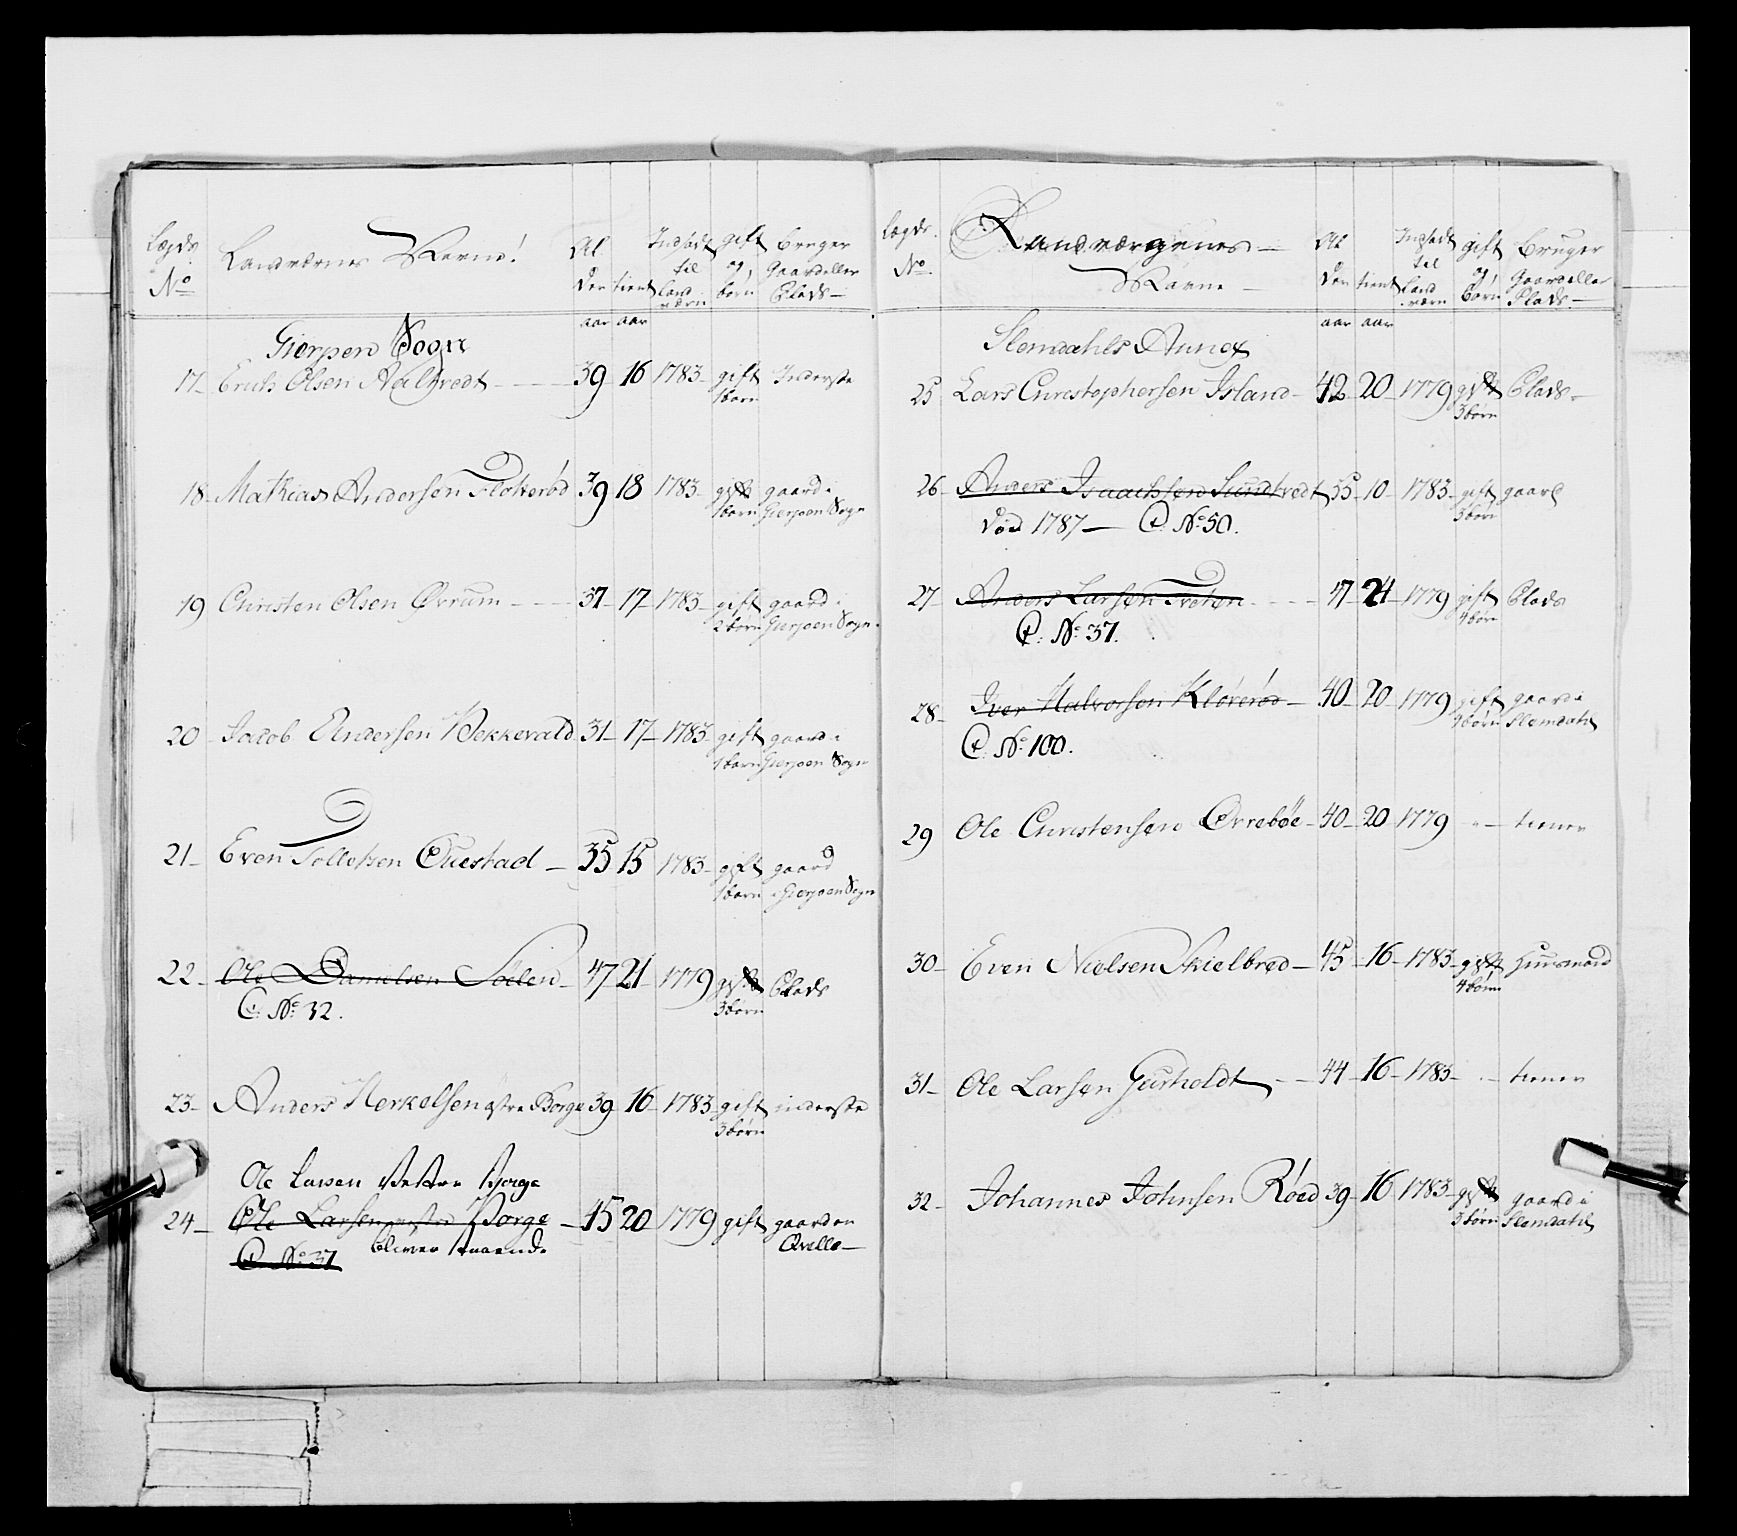 Lægds No Landværnes Navne! Al der tient Indsadt til Land værn gift og børn bruger Gaard eller Plads
aar aar
Gierpen Sogn
17 Erich Olsen Aalfredt 39 16 1783 gift Inderste
1 barn
18 Mathias Andersen Flokerød 39 18 1783 gift gaard i
1 barn Gierpen Sogn
19 Christen Olsen Ørrum 37 17 1783 gift gaard i
2 børn Gierpen Sogn
20 Jacob Andersen Bekkevald 31 17 1783 gift gaard i
1 barn Gierpen Sogn
21 Even Tollefsen Øuestad 35 15 1783 gift gaard
1 barn i Gierpen Sogn
22 Ole Danielsen 47 21 1779 gift Plads
C. No 32. 3 børn
23 Anders Herkelsen østre Borge 39 16 1783 gift inderste
3 børn
Ole Larsen Vestre Borge
24 Ole Larsen Borge 45 20 1779 gift gaard en
bliver staaende Qvelle
C. No 37
Lægds No. Landværgenes Navne Al der tient Indsadt til Land værn gift og børn Bruger Gaard eller Plads
aar aar
Slemdahls Annex
25 Lars Christophersen Island 42 20 1779 gift Plads
3 børn
26 Anders Isaachsen Sundtvedt 35 10 1783 gift gaard
3 børn
Død 1787 C. No 50.
27 Anders Larsen Treten 47 24 1779 gift Plads
4 børn
C. No 37.
28 Iver Halvorsen Kløverød 40 20 1779 gift gaard i
børn Slemdahl
C. No 100.
29 Ole Christensen Ørrebøe 40 20 1779 tiener
30 Even Nielsen Skielbred 45 16 1783 gift Huusmand
4 børn
31 Ole Larsen Gurholdt 44 16 1783 tiener
32 Johannes Johnsen Røed 39 16 1783 gift gaard i
3 børn Slemdahl